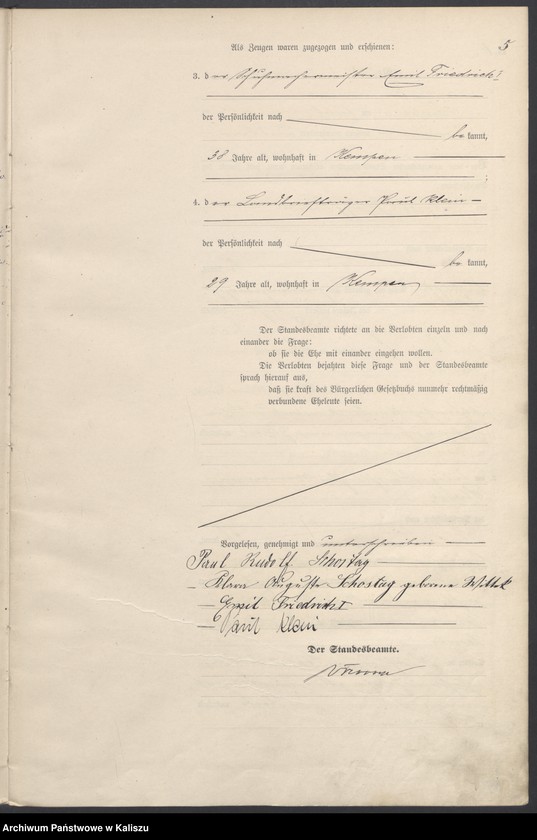 5
Als Zeugen waren zugezogen und erschienen:
3. der Schuhmachermeister Emil Friedrich I
der Persönlichkeit nach
bekannt,
38 Jahre alt, wohnhaft in Kempen
4. der Landbriefträger Paul Klein
der Persönlichkeit nach
bekannt,
29 Jahre alt, wohnhaft in Kempen
Der Standesbeamte richtete an die Verlobten einzeln und nach
einander die Frage:
ob sie die Ehe mit einander eingehen wollen.
Die Verlobten bejahten diese Frage und der Standesbeamte
sprach hierauf aus,
daß sie kraft des Bürgerlichen Gesetzbuchs nunmehr rechtmäßig
verbundene Eheleute seien.
Vorgelesen, genehmigt und unterschrieben
Paul Rudolf Schostag
Klara Auguste Schostag geborene
Emil Friedrich I
Paul Klein
Der Standesbeamte.
Archiwum Państwowe w Kaliszu